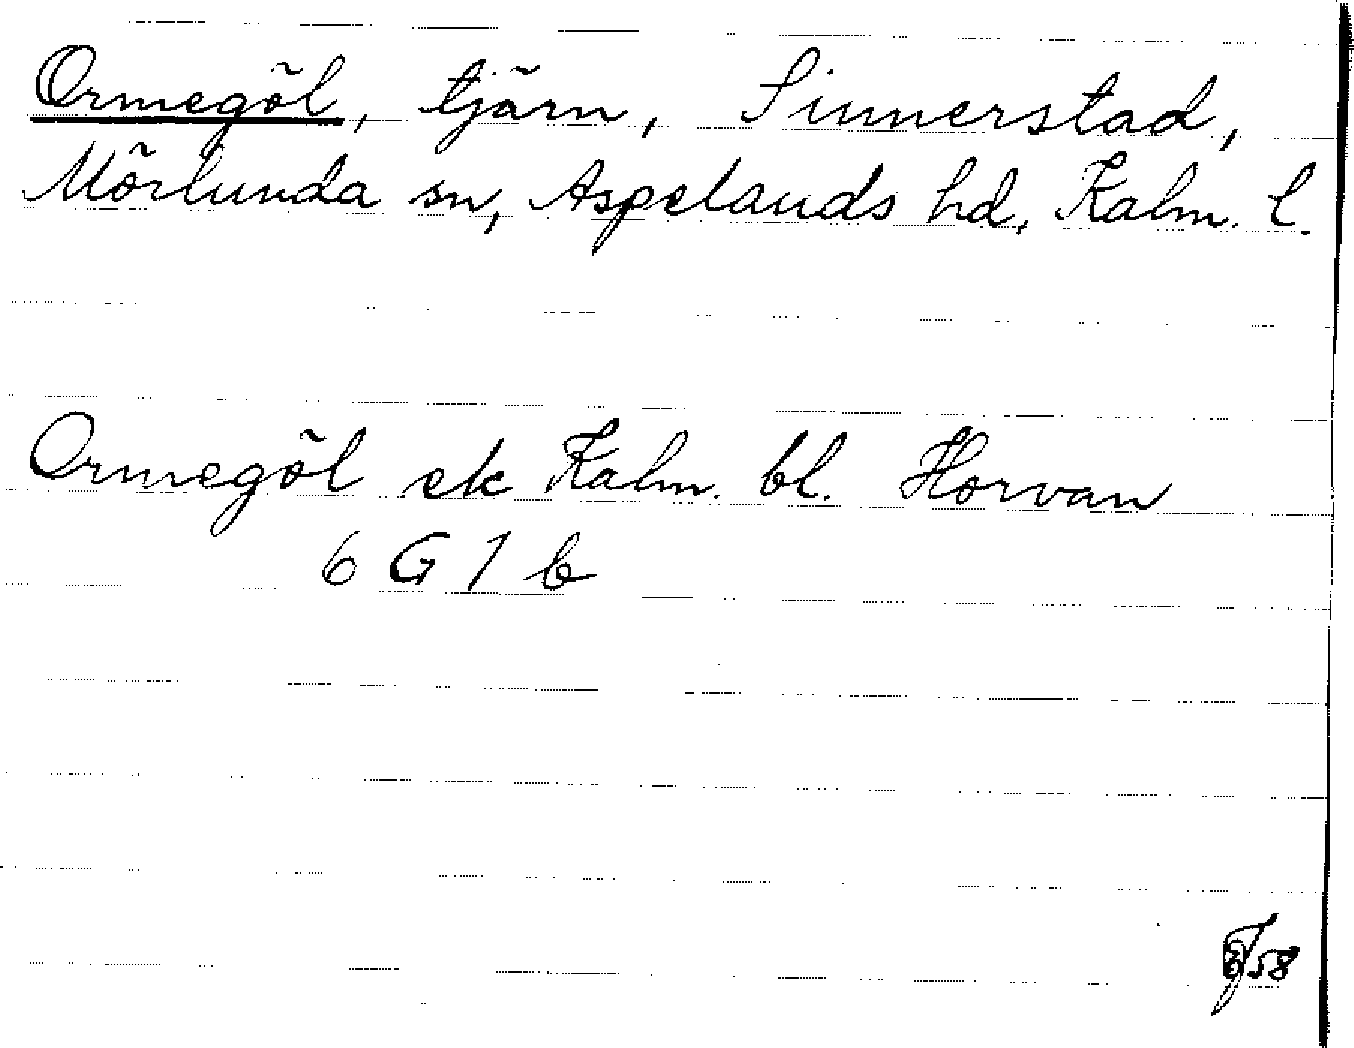 Ormegöl, tjärn, Sinnerstad,
Mörlunda sn, Aspelands hd, Kalm. l.
Ormegöl ek Kalm. bl. Horvan
6 G 1 b
58